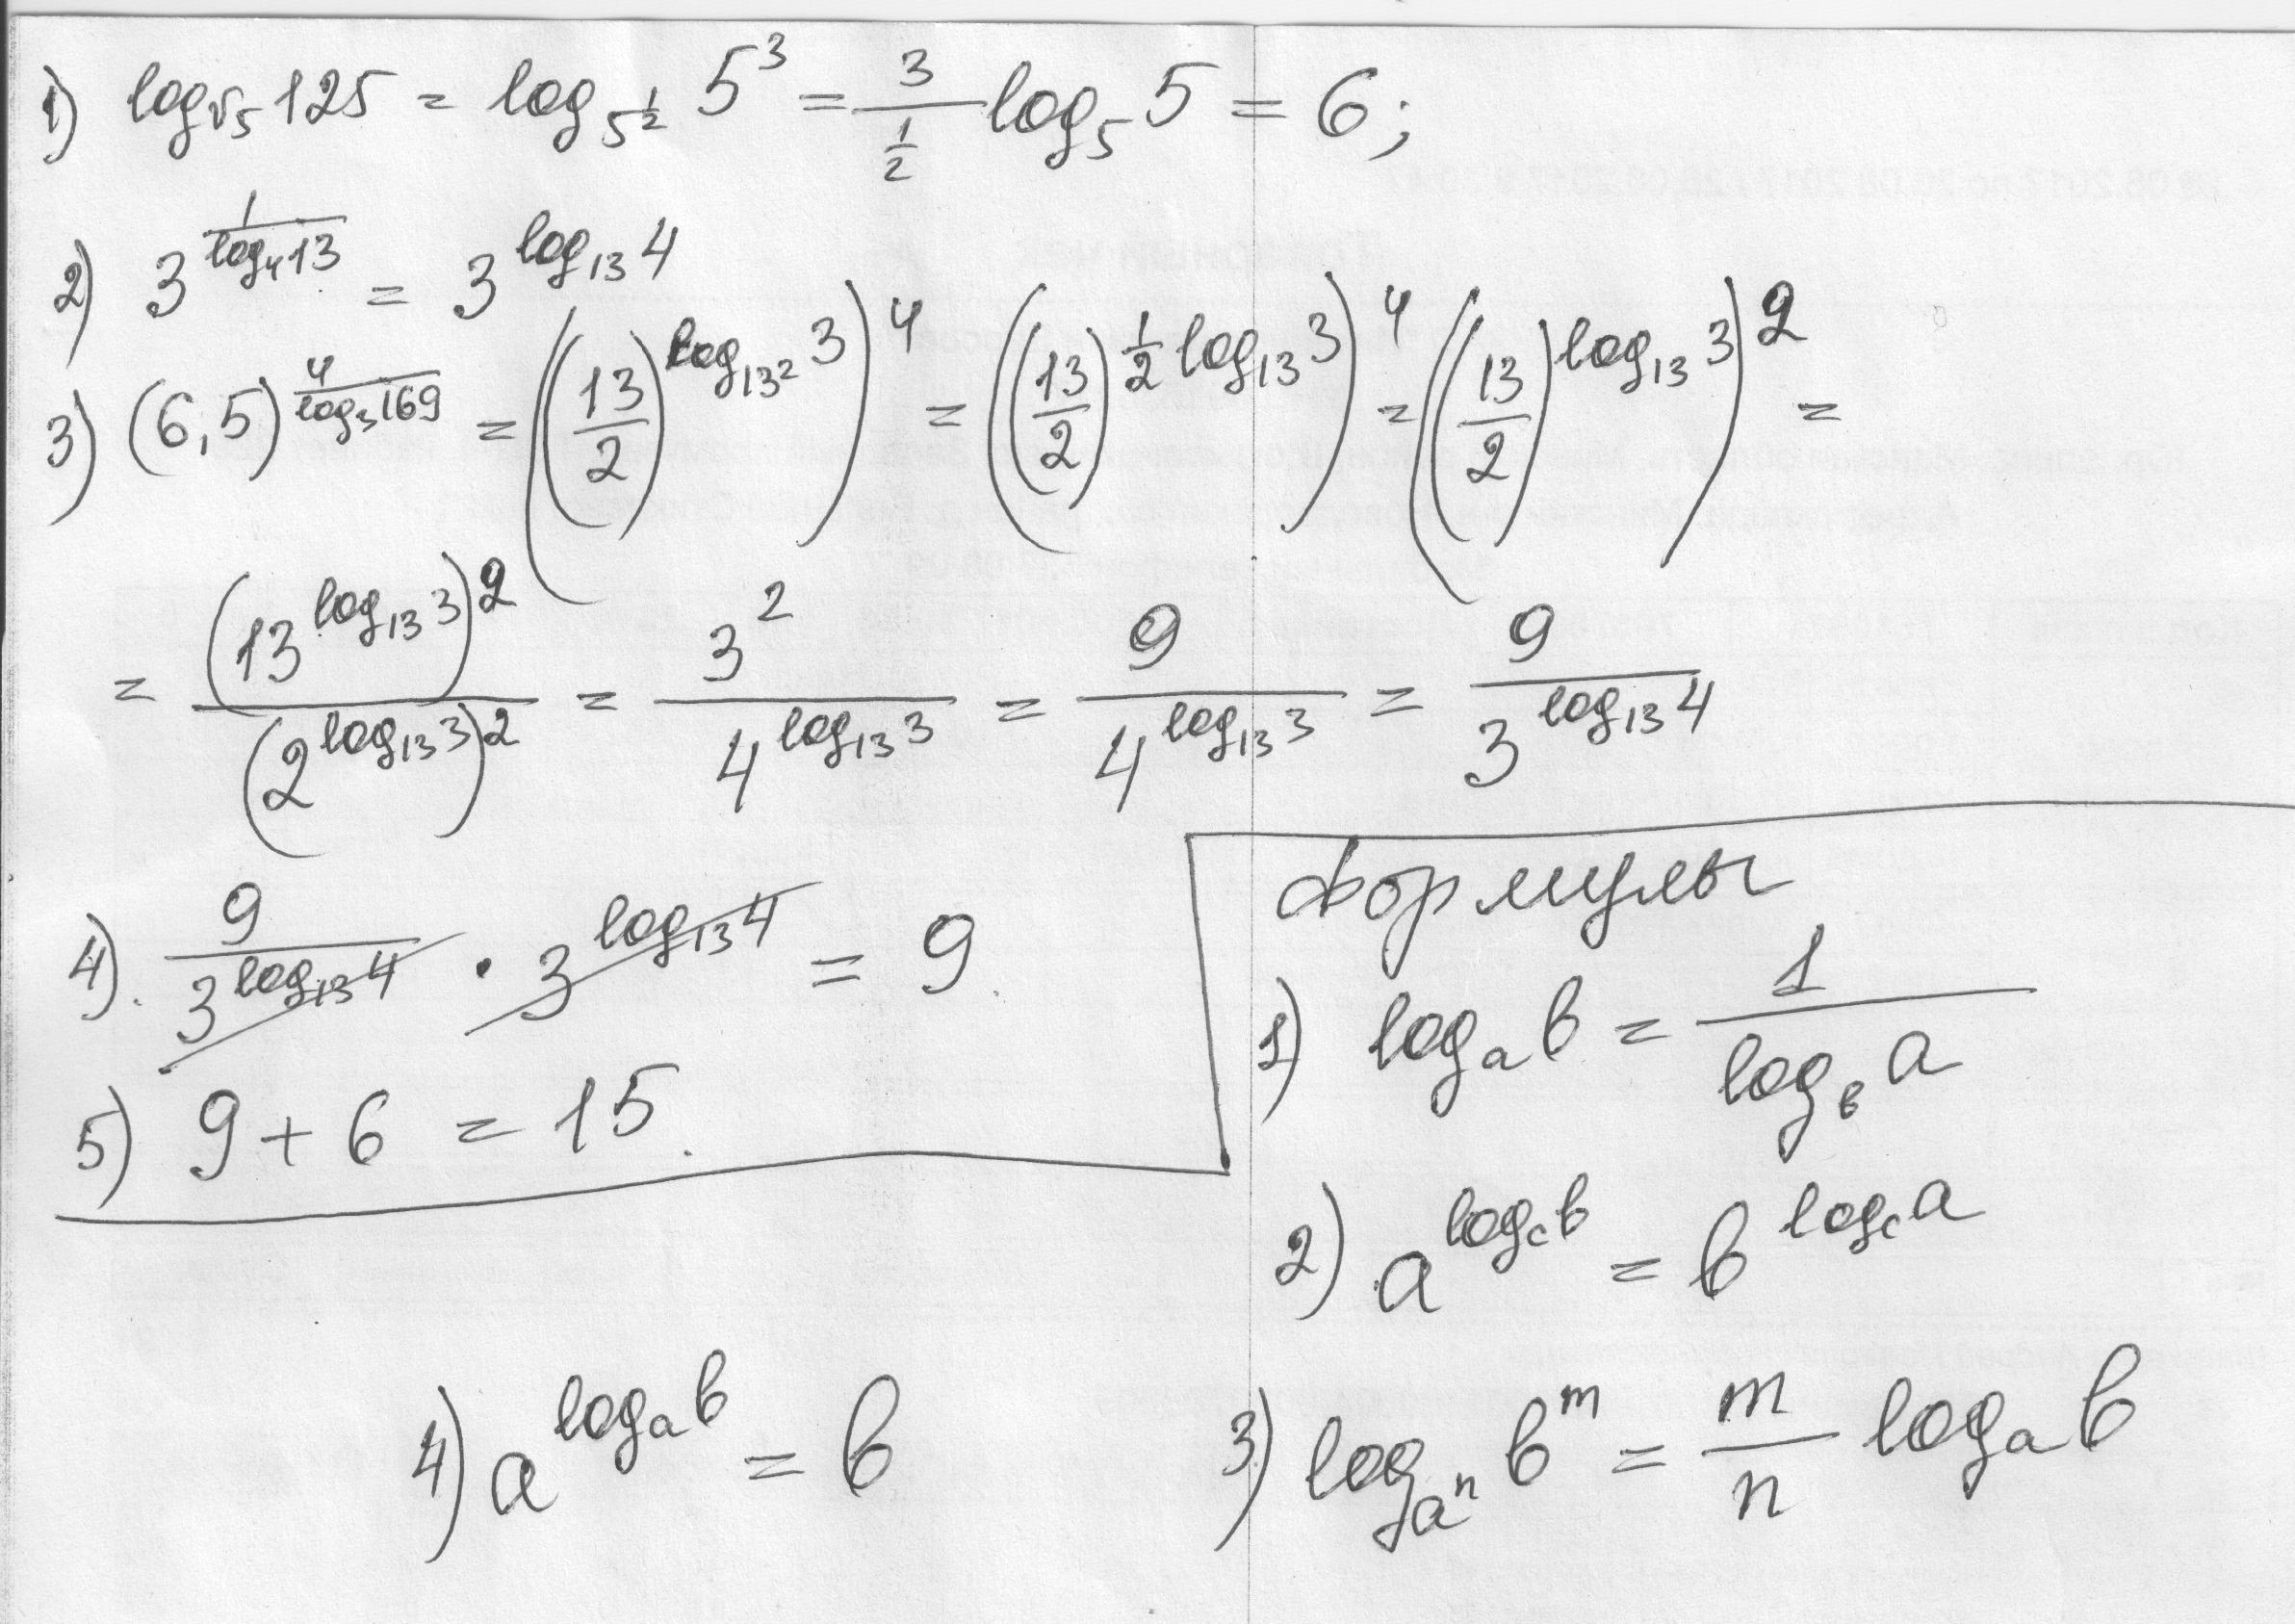 1) log_√5 125 = log_{5^{1/2}} 5^3 = 3/(1/2) log_5 5 = 6;
2) 3^{1/(log_4 13)} = 3^{log_13 4}
3) (6,5)^{4/(log_3 169)} = ((13/2)^{log_{13^2} 3})^4 = ((13/2)^{1/2 log_13 3})^4 = ((13/2)^{log_13 3})^2 =
= (13^{log_13 3})^2/(2^{log_13 3})^2 = 3^2/4^{log_13 3} = 9/4^{log_13 3} = 9/3^{log_13 4}
4). 9/3^{log_13 4} · 3^{log_13 4} = 9.
5) 9 + 6 = 15.
Формулы
1) log_a b = 1/(log_b a)
2) a^{log_c b} = b^{log_c a}
3) log_{a^n} b^m = m/n log_a b
4) a^{log_a b} = b